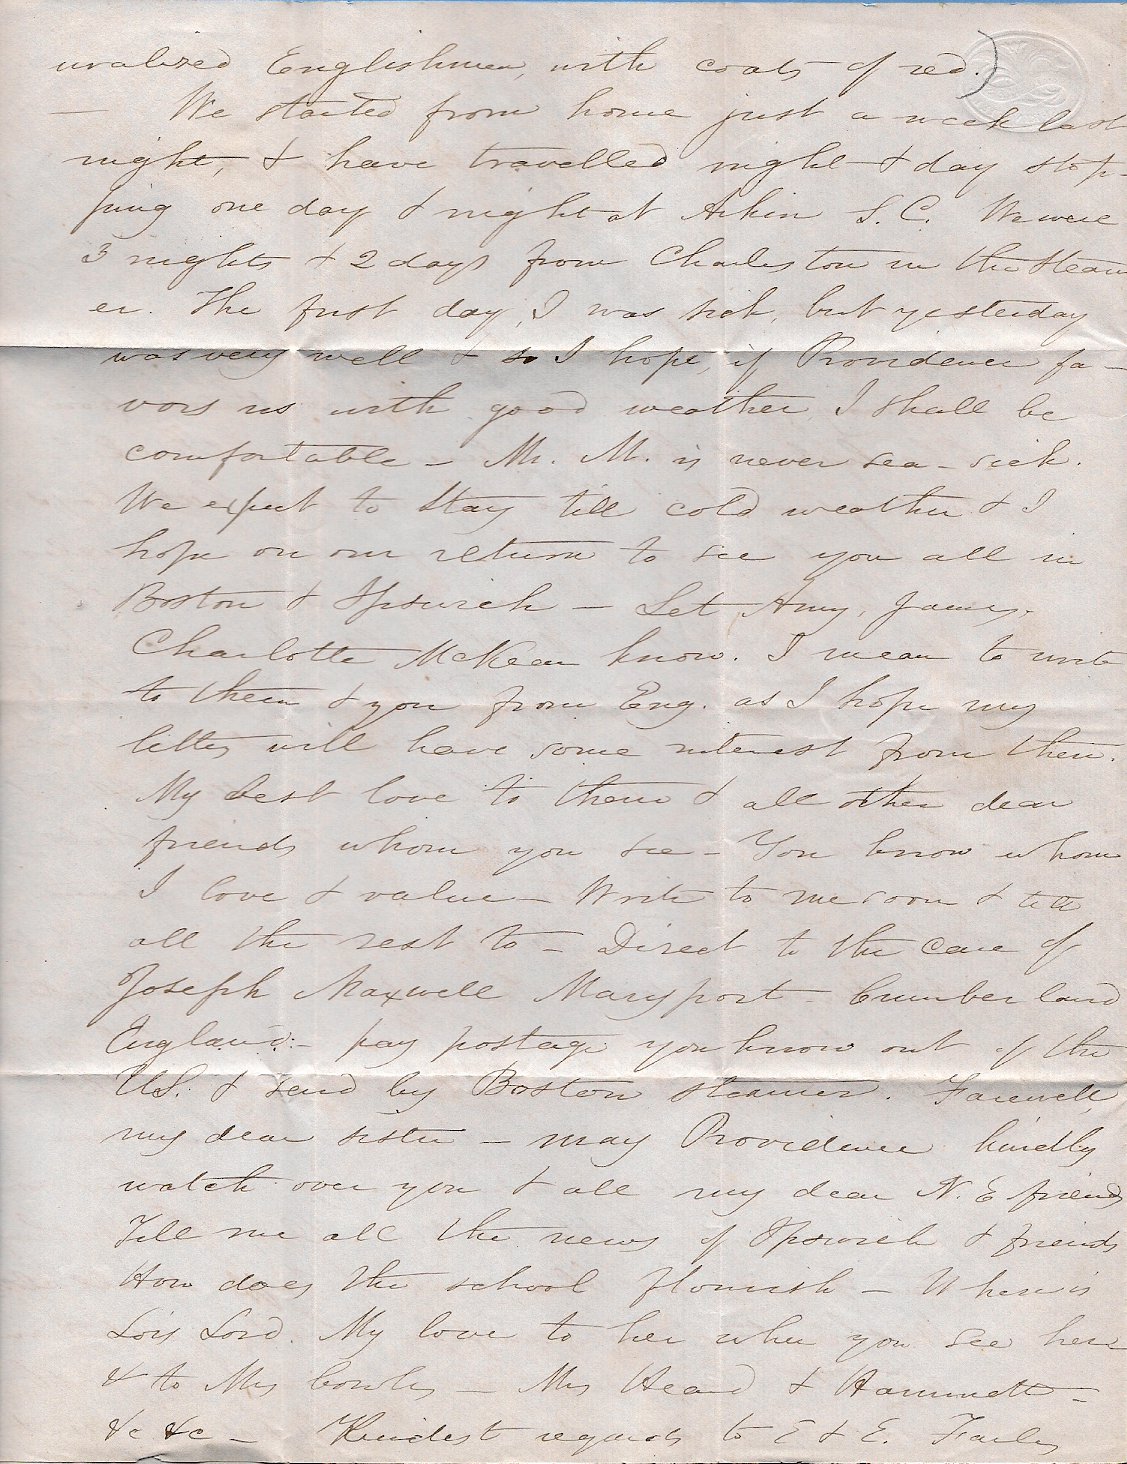 uralized Englishmen, with coats of red.)
— We started from home just a week last
night, & have travelled night & day stop-
ping one day & night at Aikin S.C. We were
3 nights & 2 days from Charleston in the steam
er. The first day, I was sick, but yesterday
was very well & so I hope, if Providence fa-
vors us with good weather, I shall be
comfortable — Mr. M. is never sea-sick.
We expect to stay till cold weather & I
hope on our return to see you all in
Boston & Ipswich — Let Amy, James,
Charlotte McKean know. I mean to write
to them & you from Eng. as I hope my
letters will have some interest from then.
My best love to them & all other dear
friends whom you see — You know whom
I love & value — Write to me soon & tell
all the rest to — Direct to the care of
Joseph Maxwell Maryport — Cumberland
England — pay postage you know out of the
U.S. & send by Boston steamer. Farewell,
my dear sister — may Providence kindly
watch over you & all my dear N. E friends
Tell me all the news of Ipswich & friends
How does the school flourish — Where is
Lois Lord. My love to her when you see her
& to Mrs Cowles — Mrs Heard & Hammett —
&c &c — Kindest regards to E & E. Farley